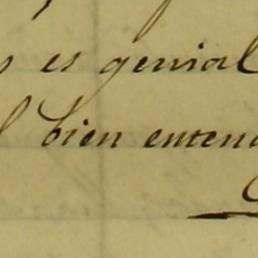 es genial
bien entend